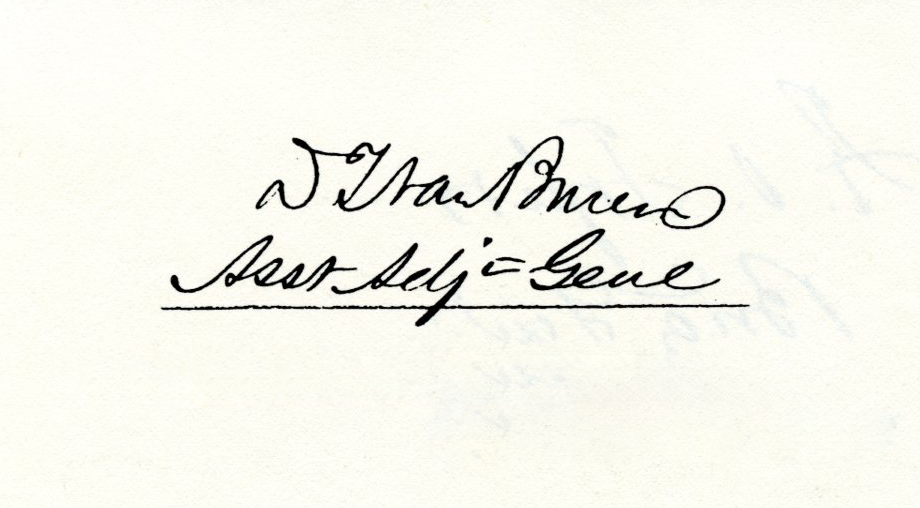 D T Van Buren
Asst Adj = Genl